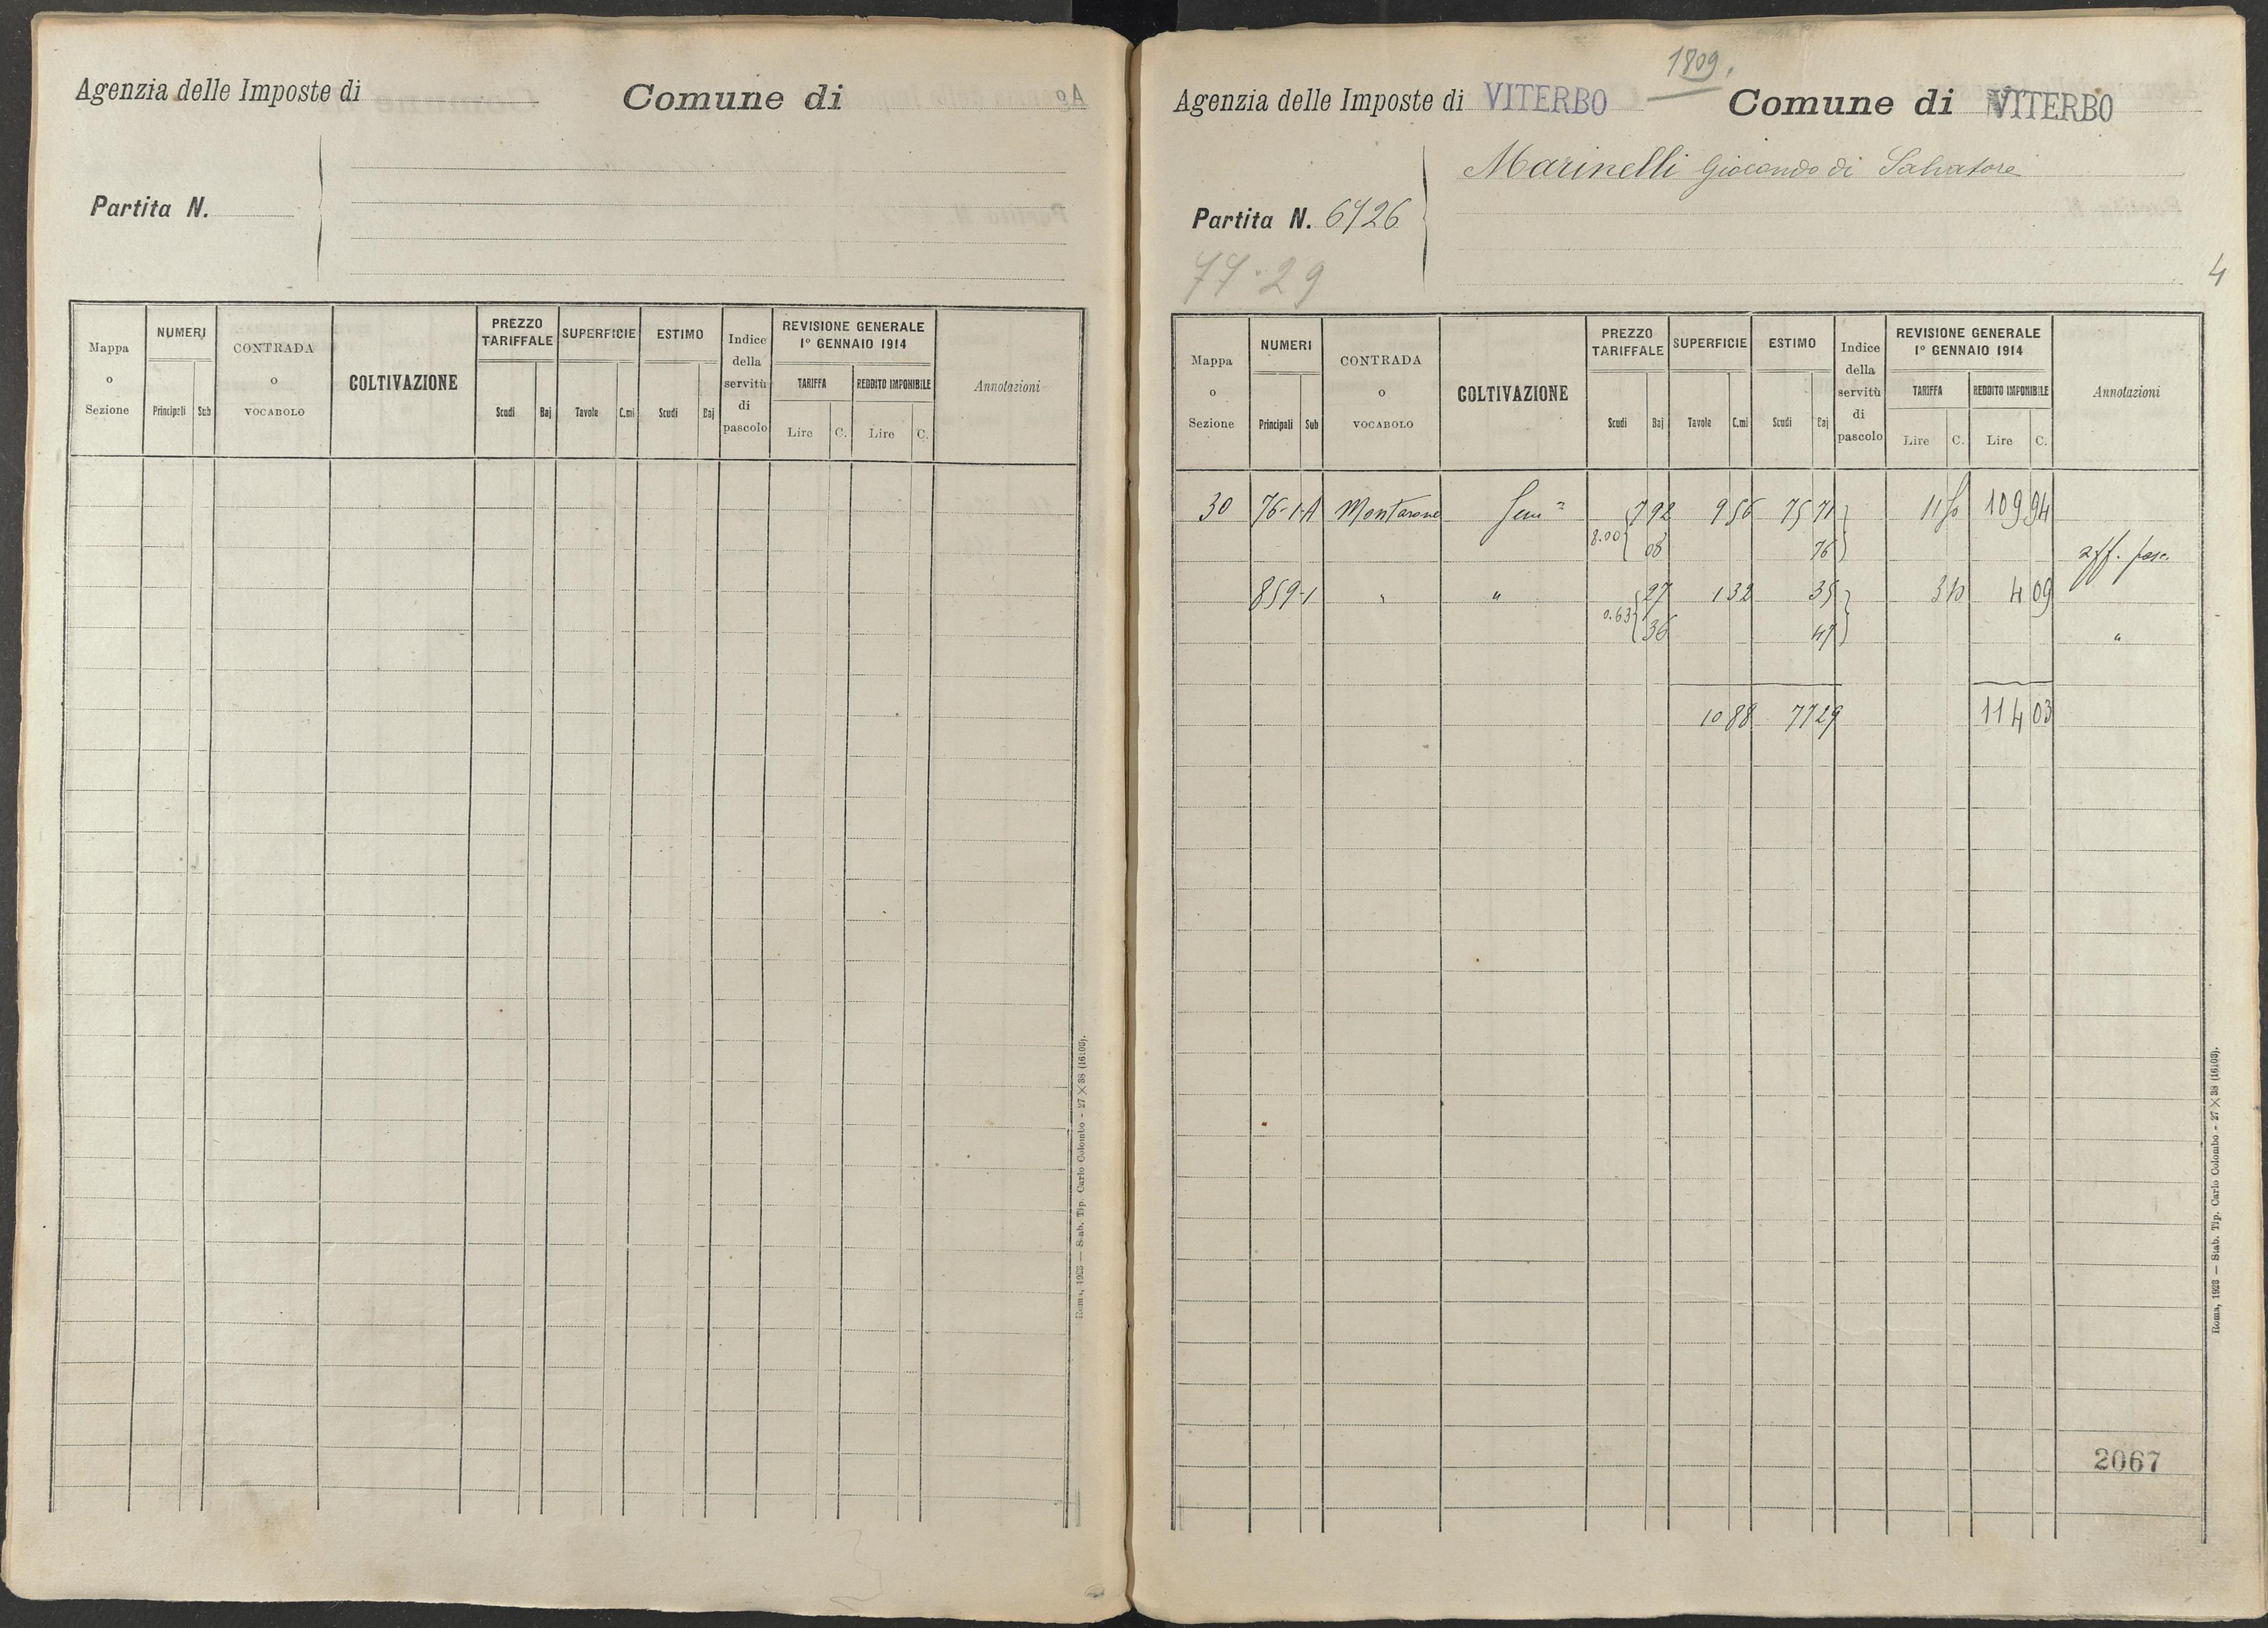 Agenzia delle Imposte di
Comune di
Partita N.
Mappa o Sezione
NUMERI
Principali Sub
CONTRADA o VOCABOLO
COLTIVAZIONE
PREZZO TARIFFALE
Scudi Baj
SUPERFICIE
Tavole C.mi
ESTIMO
Scudi Baj
Indice della servitù di pascolo
REVISIONE GENERALE
1° GENNAIO 1914
TARIFFA REDDITO IMPONIBILE
Lire C. Lire C.
Annotazioni
Roma, 1923 — Stab. Tip. Carlo Colombo - 27 × 38 (16103).
1809.
Agenzia delle Imposte di VITERBO
Comune di VITERBO
Marinelli Giocondo di Salvatore
Partita N. 6726
77·29
4
Mappa o Sezione
NUMERI
Principali Sub
CONTRADA o VOCABOLO
COLTIVAZIONE
PREZZO TARIFFALE
Scudi Baj
SUPERFICIE
Tavole C.mi
ESTIMO
Scudi Baj
Indice della servitù di pascolo
REVISIONE GENERALE
1° GENNAIO 1914
TARIFFA REDDITO IMPONIBILE
Lire C. Lire C.
Annotazioni
30 76-1-A Montarone Sem 7 92 9 56 75 71 11 50 109 94
8.00 08 76
aff. pasc.
859-1 " " 27 1 32 35 3 10 4 09
0.63 36 47
"
10 88 77 29 114 03
2067
Roma, 1923 — Stab. Tip. Carlo Colombo - 27 × 38 (16103).